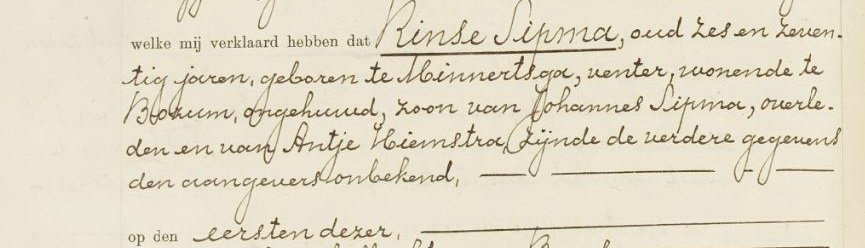 welke mij verklaard hebben dat Rinse Sipma, oud zes en zeven-
tig jaren, geboren te Minnertsga, venter, wonende te
Bozum, ongehuwd, zoon van Johannes Sipma, overle-
den en van Antje Hiemstra, zijnde de verdere gegevens
den aangevers onbekend,
op den eersten dezer,